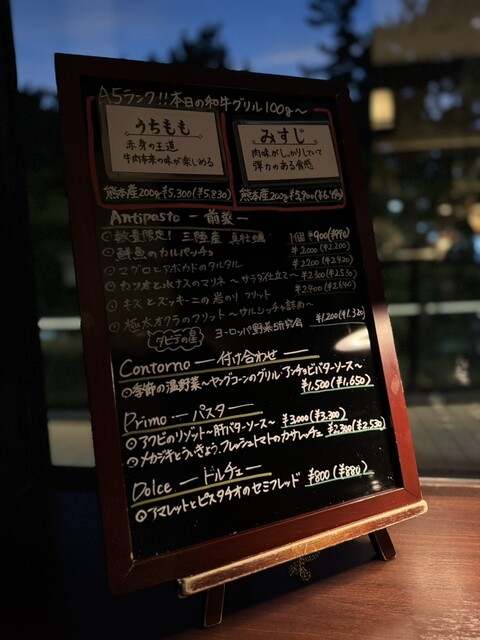 A5ランク!!本日の和牛グリル100g〜
うちもも
赤身の王道
牛肉本来の味が楽しめる
熊本産200g¥5,300(¥5,830)
みすじ
肉味がしっかりしていて
弾力のある食感
熊本産200g
Antipasto ー前菜ー
数量限定! 三陸産 真牡蠣 1個 ¥900(¥990)
鮮魚のカルパッチョ ¥2000(¥2200)
マグロとアボカドのタルタル ¥2200(¥2420)
カツオと水ナスのマリネ 〜サラダ仕立て〜 ¥2300(¥2530)
キスとズッキーニの岩のり フリット ¥2400(¥2640)
極太オクラのフリット〜サルシッチャ詰め〜
ダビデの星 ヨーロッパ野菜研究会 ¥1,200(¥1,320)
Contorno ー付け合わせー
季節の温野菜〜ヤングコーンのグリル・アンチョビバターソース〜
¥1,500(¥1,650)
Primo ーパスター
アワビのリゾット〜肝バターソース〜 ¥3,000(¥3,300)
メカジキとういきょう、フレッシュトマトのカサレッチェ ¥2,300(¥2,530)
Dolce ードルチェー
アマレットとピスタチオのセミフレッド ¥800(¥880)